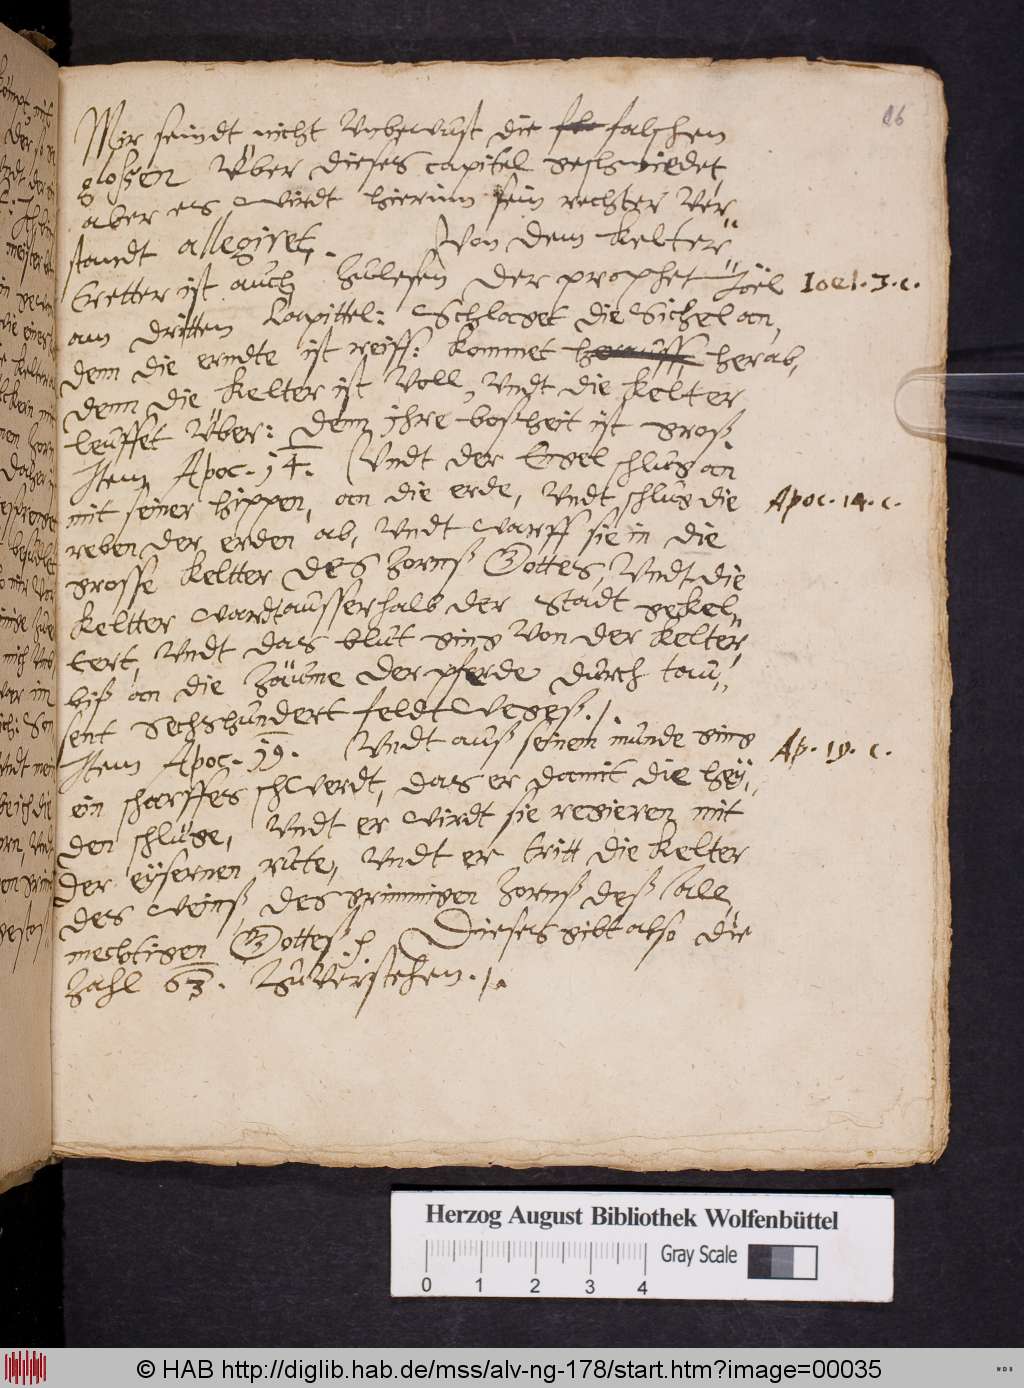 16
Mir seindt nicht Unbewust die fle falschen
gloßen Über dieses capitel geschmiedet,
aber es wirdt hierinn sein rechter Ver"
standt allegiret. Von dem Kelter"
tretter ist auch zulesen der prophet Joël
Ioel. 3. c.
am dritten Capittel: Schlaget die Sichel an,
denn die erndte ist reiff: kommet herauff, herab,
denn die Kelter ist Voll, Undt die Kelter
leuffet Über: denn ihre boßheit ist groß.
Item Apoc. 14. Undt der Engel schlug an
mit seiner hippen, an die erde, Undt schlug die
Apoc. 14. c.
reben der erden ab, Undt warff sie in die
grosse Keltter des Zornß Gottes, Undt die
Keltter wardt ausserhalb der Stadt gekel"
tert, Undt das blut ging Von der Kelter,
biß an die Zäume der pferde durch tau"
sent Sechshundert feldt Weges./.
Item Apoc. 19. Undt auß seinem munde ging
Ap. 19. c.
ein scharffes schwerdt, das er damit die hey"
den schluge, Undt er wirdt sie regieren mit
der eysernen rute, Undt er tritt die Kelter
des Weinß, des grimmigen Zornß deß all
mechtigen Gotteß. Dieses gibt also die
Zahl 63. Zuverstehen./.
Herzog August Bibliothek Wolfenbüttel
Gray Scale
0 1 2 3 4
© HAB http://diglib.hab.de/mss/alv-ng-178/start.htm?image=00035